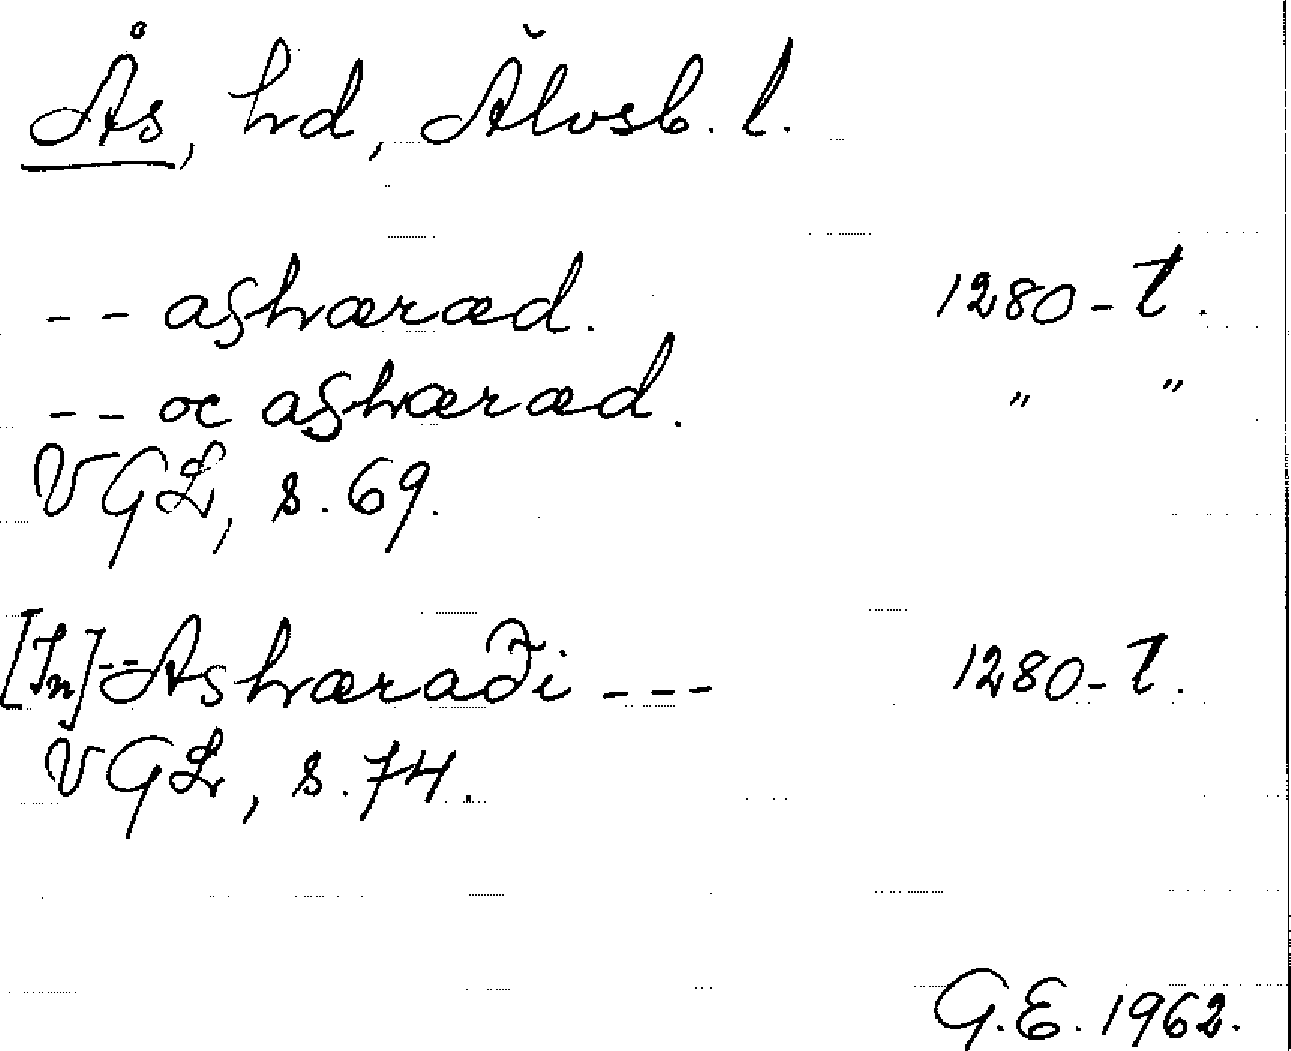 Ås, hd, Älvsb. l.
-- ashæræd. 1280-t.
-- oc ashæræd. " "
VGL, s. 69.
[In]--Ashæraði --- 1280-t.
VGL, s. 74.
G.E. 1962.